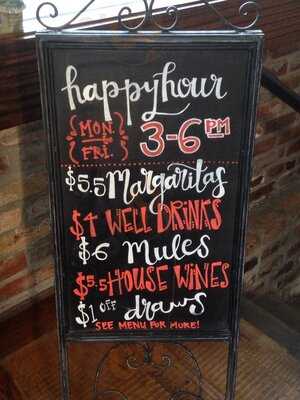 happy hour
{MON. FRI.} 3-6 PM
$5.5 Margaritas
$4 WELL DRINKS
$6 Mules
$5.5 HOUSE WINES
$1 off draws
SEE MENU FOR MORE!